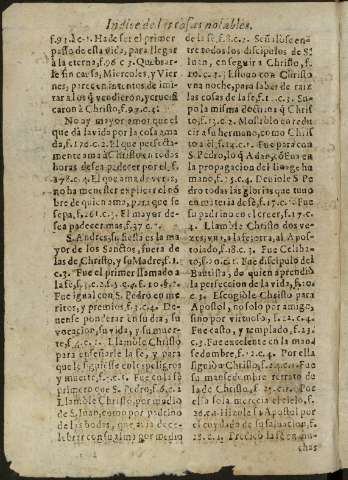 Indice de las cosas notables.
f.93. c. 1. Ha de ser el primer
passo de esta vida, para llegar
à la eterna, f.96 c 3. Quebrar-
le sin causa, Miercoles, y Vier
nes, parecen intentos de imi-
tar à los q̃ vendieron, y cruci
caron à Christo, f.99. c.4.
No ay mayor amor que el
que dà la vida por la cosa ama
da, f.170. c. 2. El que perfecta
mente ama à Christo en todas
horas desea padecer por el, f.
278. c.4. El que ama de veras,
no ha menester explicar el nõ
bre de quien ama, para que se
sepa, f.261. c.3. El mayor de-
sea padecer mas, f.37. c.
S. Andres, su fiesta es la ma
yor de los Santos, fuera de
las de Christo, y su Madre, f.1.
c.3. Fue el primer llamado a
la fè, f.3. c.
Fue igual con S. Pedro en me
ritos, y premios, f.3. c.4. De-
uense ponderar en su dia; su
vocacion, su vida, y su muer-
te, f.4. c. Llamòle Christo
para enseñarle la fè, y para
que le siguiesse en los peligros
y muerte, f. Fue con la fè
primero con S. Pedro, f.
Llamòle Christo, por medio
de S. Iuan, como por padrino
de las bodas, que auia de ce-
lebrar con su alma por medio
de la fè, f.8. c. Señalòse en-
tre todos los discipulos de S.
Iuan, en seguir a Christo, f.
10. c. Estuuo con Christo
vna noche, para saber de raiz
las cosas de la fè, f. c.3. Su-
po la misma doctrina q̃ Christ
to, f.13. c.2. Mostròlo en redu
cir a su hermano, como Chris
to a èl, f.14. c. Fue para con
S. Pedro, lo q̃ Adan, ò Eua en
la propagacion del linage hu
mano, f.15. c.4. Deuiòle S. Pe
dro todas las glorias que tuuo
en materia de fè, f.17. c. Fue
su padrino en el creer, f.17. c.
4. Llamòle Christo dos ve-
zes, vna, a la fe, otra, al Apos-
tolado, f.18. c.3. Fue Celiba-
to, f. c. Fue discipulo del
Bautista, de quien aprendiò
la perfeccion de la vida, f.20.
c.3. Escogiòle Christo para
Apostol, no solo por amigo,
sino por virtuoso, f.22. c.4.
Fue casto, y templado, f.23.
c.3. Fue excelente en la man-
sedumbre, f. c.4. Por ella
siguiò a Christo, f. c. Fue
su mansedumbre retrato de
la de Christo, f.25. c. Por
ella sola merecia el cielo, f.
26. c. Hizole Apostol por
el cuydado de su saluacion, f.
28. c. Predicò la fè en mu-
chas